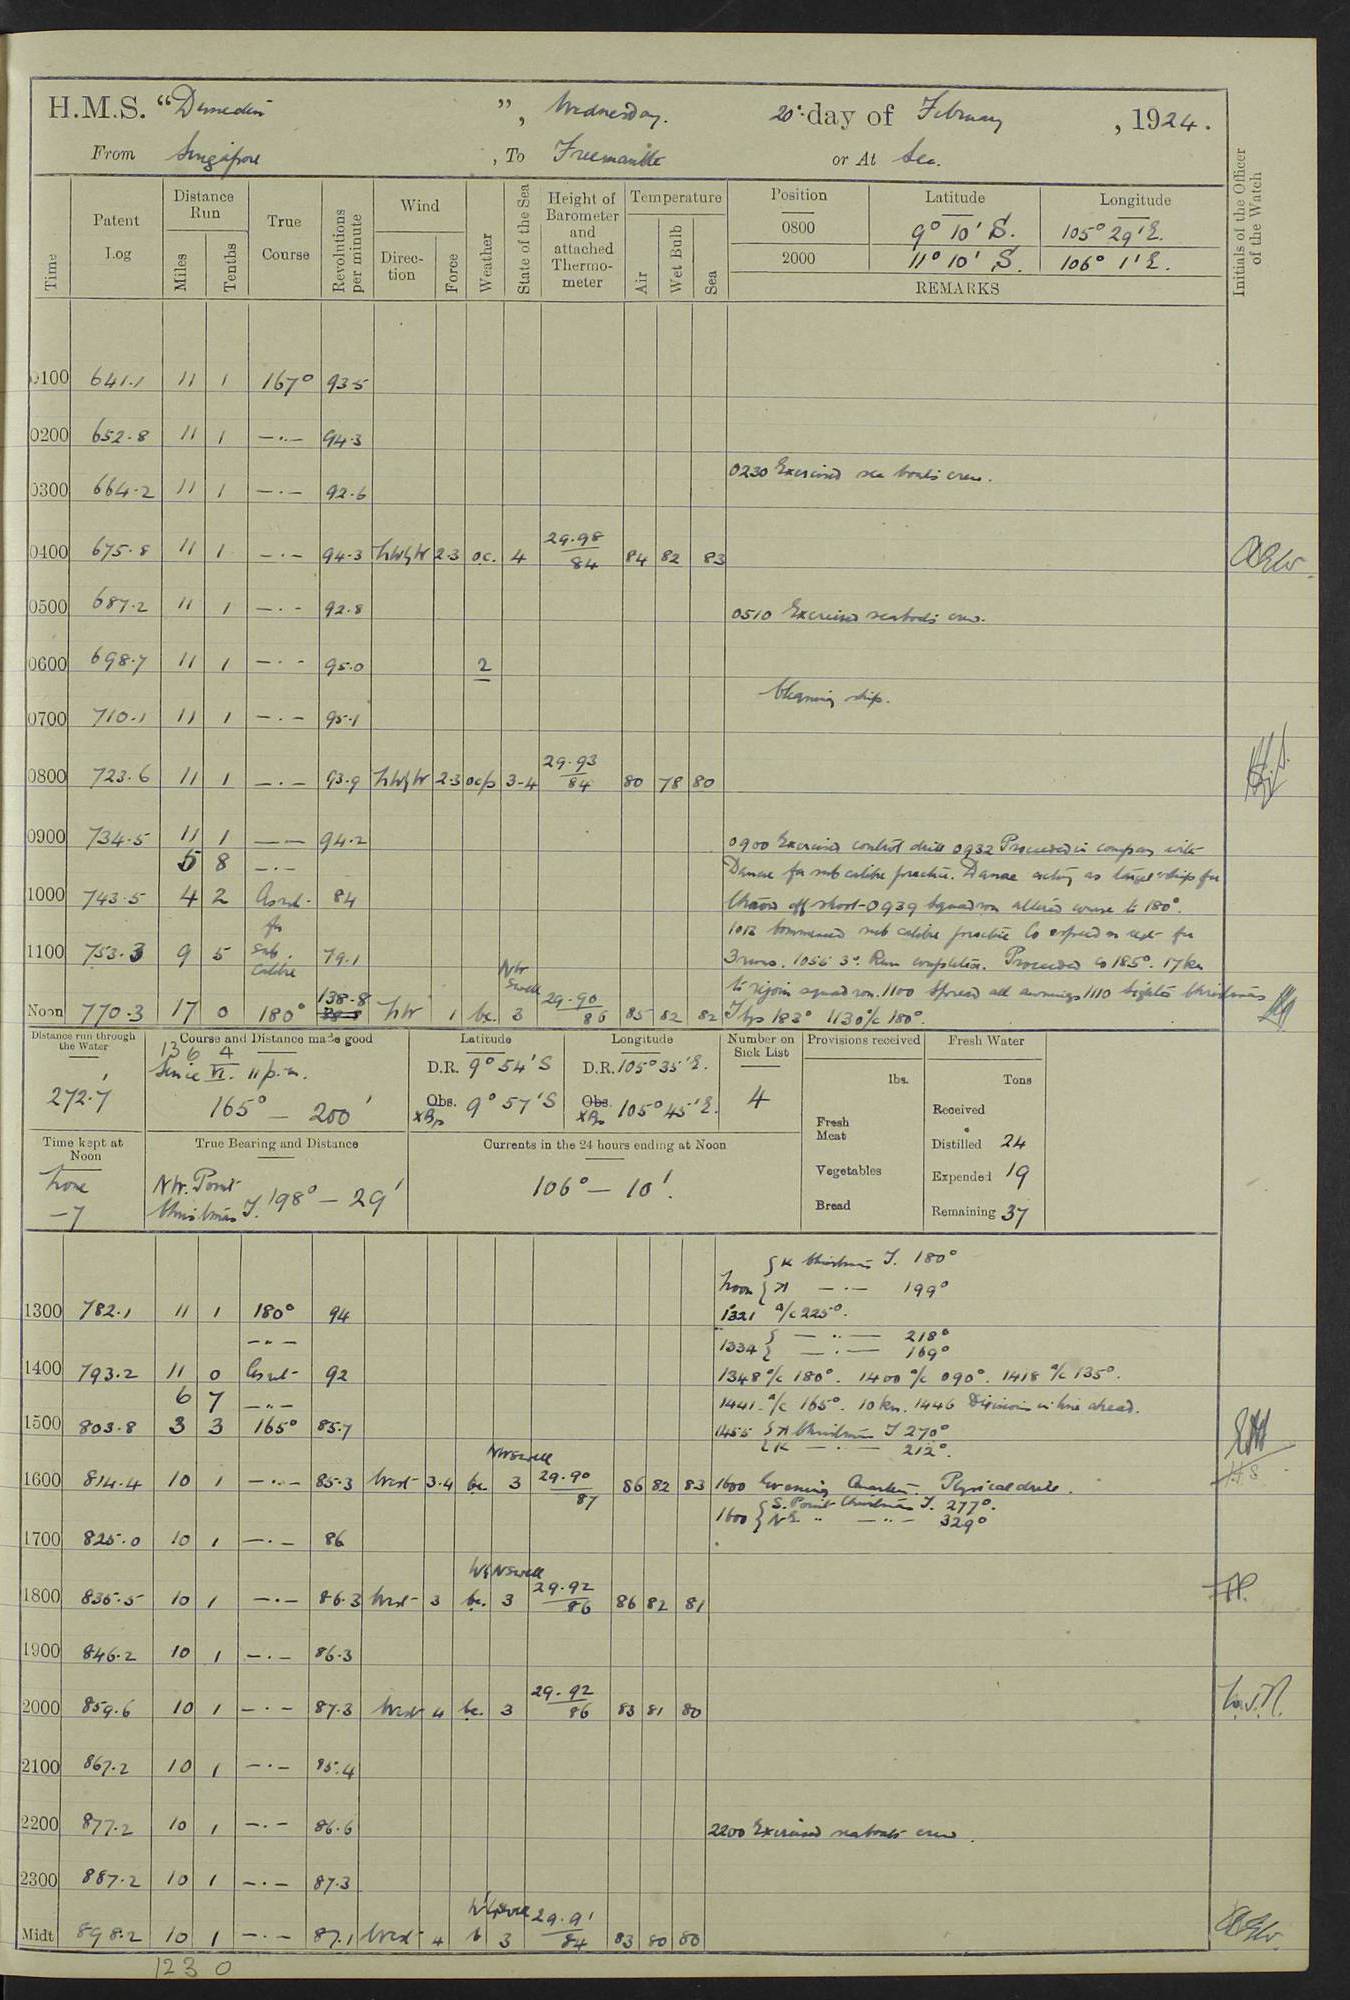 H.M.S. “Dunedin”, Wednesday. 20th day of February, 1924.
From Singapore, To Freemantle or At Sea.
Time
Patent Log
Distance Run
Miles
Tenths
True Course
Revolutions per minute
Wind
Direction
Force
Weather
State of the Sea
Height of Barometer and attached Thermometer
Temperature
Air
Wet Bulb
Sea
Position Latitude Longitude
0800 9° 10' S. 105° 29' E.
2000 11° 10' S. 106° 1' E.
REMARKS
Initials of the Officer of the Watch
0100 641.1 11 1 167° 93.5
0200 652.8 11 1 —..— 94.3
0230 Exercised sea boats crew.
0300 664.2 11 1 —.— 92.6
0400 675.8 11 1 —.— 94.3 NWbyW 2.3 oc. 4 29.98 84 84 82 83
0500 687.2 11 1 —.— 92.8
0510 Exercised seaboats crew.
0600 698.7 11 1 —.— 95.0 2
Cleaning ship.
0700 710.1 11 1 —.— 95.1
0800 723.6 11 1 —.— 93.9 NWbyW 2.3 ocp 3-4 29.93 84 80 78 80
0900 734.5 11 1 —— 94.2
0900 Exercised control drill 0932 Proceeded in company with
5 8 —.—
Danae for sub calibre practice. Danae acting as target ship for
1000 743.5 4 2 As req- 84
throw off shoot - 0939 Squadron altered course to 180°.
for
1012 Commenced sub calibre practice Co & speed as req- for
1100 753.3 9 5 Sub. Calibre 79.1
3 runs. 1055 3rd. Run completed. Proceeded Co 185°. 17 kn
NW Swell
to rejoin squadron. 1100 Spread all awnings 1110 Sighted Christmas
Noon 770.3 17 0 180° 138.8 NW 1 bc. 3 29.90 86 85 82 82
I. brg 183° 1130 a/c 180°.
Distance run through the Water
272.7'
136 4
Course and Distance made good
Since VI. 11 p.m.
165° — 200'
Latitude
D.R. 9° 54' S
Obs.
9° 57' S
Longitude
D.R. 105° 35' E.
Obs.
105° 45' E.
Number on Sick List
4
Provisions received
lbs.
Fresh Meat
Vegetables
Bread
Fresh Water
Tons
Received
Distilled 24
Expended 19
Remaining 37
Time kept at Noon
Zone
-7
True Bearing and Distance
NW. Point
Christmas I. 198° — 29'
Currents in the 24 hours ending at Noon
106° — 10'.
Noon { K Christmas I. 180°
{ A —.— 199°
1300 782.1 11 1 180° 94
1321 a/c 225°.
—..—
1334 { —..— 218°
{ —.— 169°
1400 793.2 11 0 As req- 92
1348 a/c 180°. 1400 a/c 090°. 1418 a/c 135°.
6 7 —..—
1441. a/c 165°. 10 kn. 1446 Divisions in line ahead.
1500 803.8 3 3 165° 85.7
1455 { A Christmas I 270°
{ K —.— 212°.
NW Swell
1600 814.4 10 1 —..— 85.3 West 3.4 bc. 3 29.90 87 86 82 83
1600 Evening Quarters. Physical drill.
1600 { S. Point Christmas I. 277°.
{ NE " —..— 329°
1700 825.0 10 1 —.— 86
WbyN Swell
1800 835.5 10 1 —.— 86.3 West 3 bc. 3 29.92 86 86 82 81
1900 846.2 10 1 —.— 86.3
2000 859.6 10 1 —.— 87.3 West 4 bc. 3 29.92 86 83 81 80
2100 867.2 10 1 —.— 85.4
2200 877.2 10 1 —.— 86.6
2200 Exercised seaboats crew.
2300 887.2 10 1 —.— 87.3
Midt 898.2 10 1 —.— 87.1 West 4 b 3 29.91 84 83 80 80
123 0